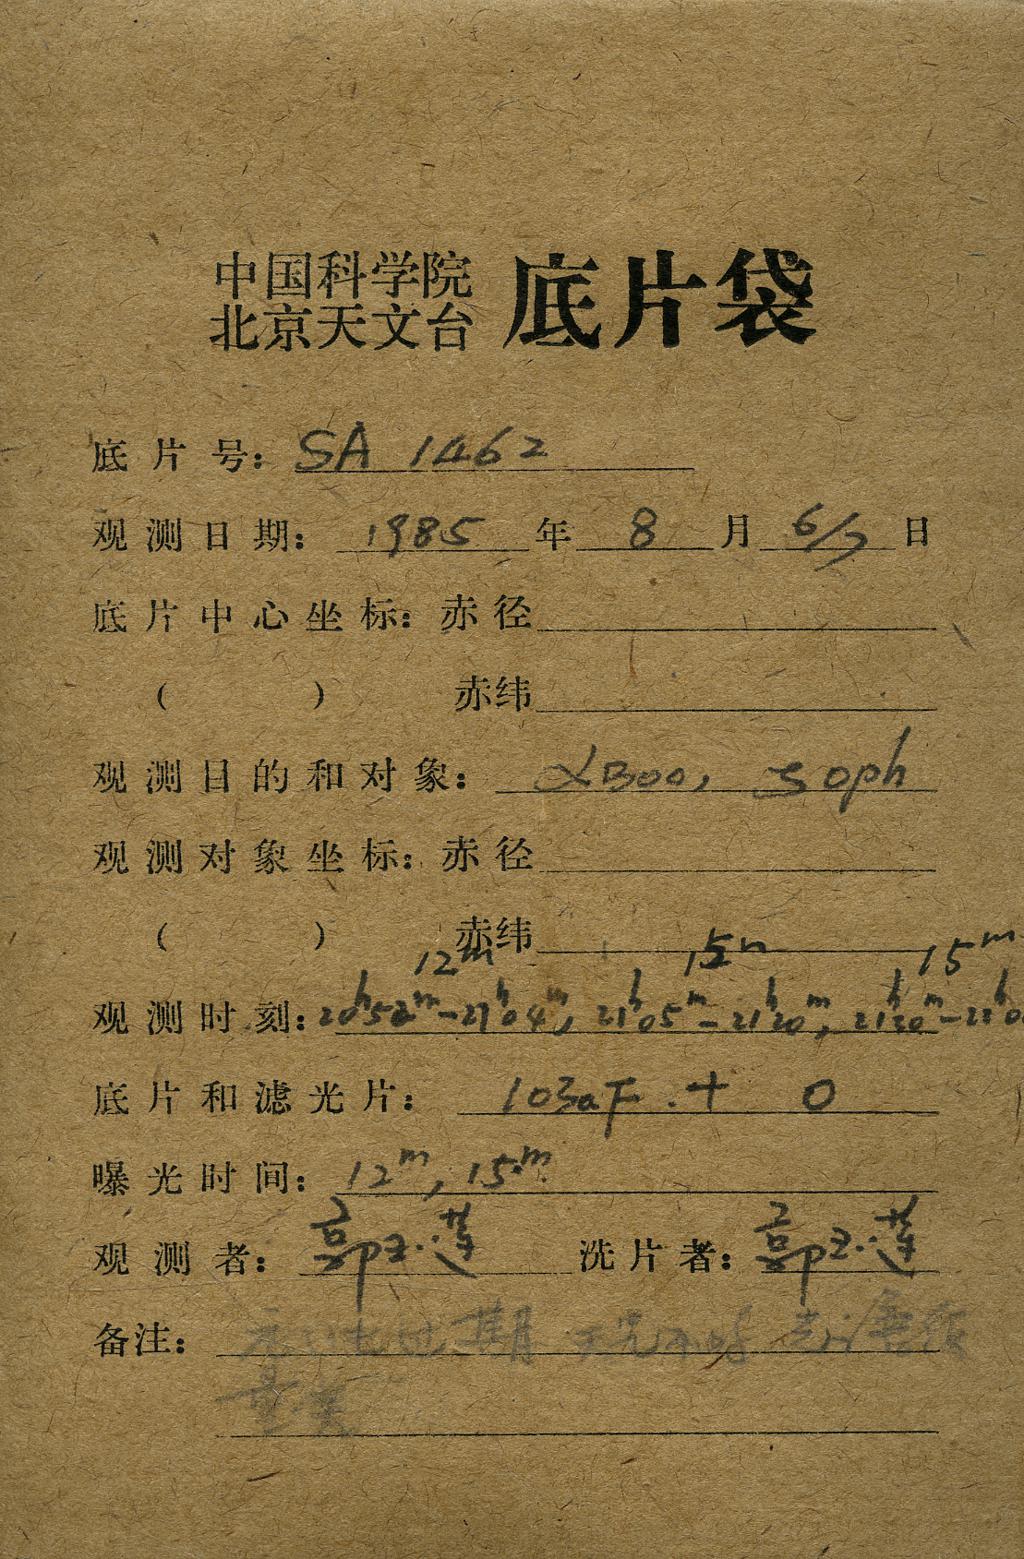 中国科学院
北京天文台 底片袋
底片号: SA 1462
观测日期: 1985 年 8 月 6/7 日
底片中心坐标: 赤径
( ) 赤纬
观测目的和对象: αBoo, ζ oph
观测对象坐标: 赤径
( ) 赤纬
12m 15m 15m
观测时刻: 20h52m-21h04m, 21h05m-21h20m, 21h20m-22h0
底片和滤光片: 103aF + O
曝光时间: 12m, 15m
观测者: 郭玉莲 洗片者: 郭玉莲
备注: 过期